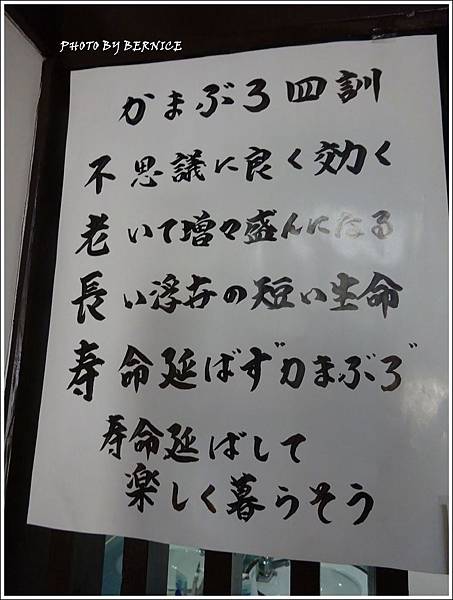 PHOTO BY BERNICE
かまぶろ四訓
不思議に良く効く
老いて増々盛んになる
長い浮世の短い生命
寿命延ばす"かまぶろ"
寿命延ばして
楽しく暮らそう